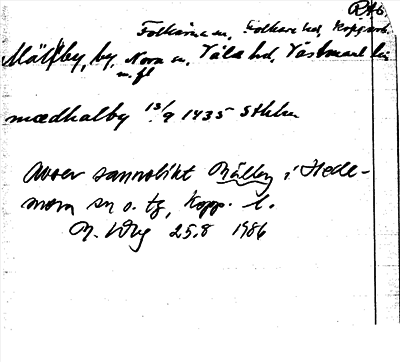 RAÖ
Folkärna sn, Folkare hd, Kopparb.
Mälby, by, Nora sn, Våla hd, Västmanl. län
m.fl
mædhalby 13/9 1435 Sthlm
Avser sannolikt Mälby i Hede-
mora sn o. tg, Kopp. l.
M. Wbg 25.8 1986